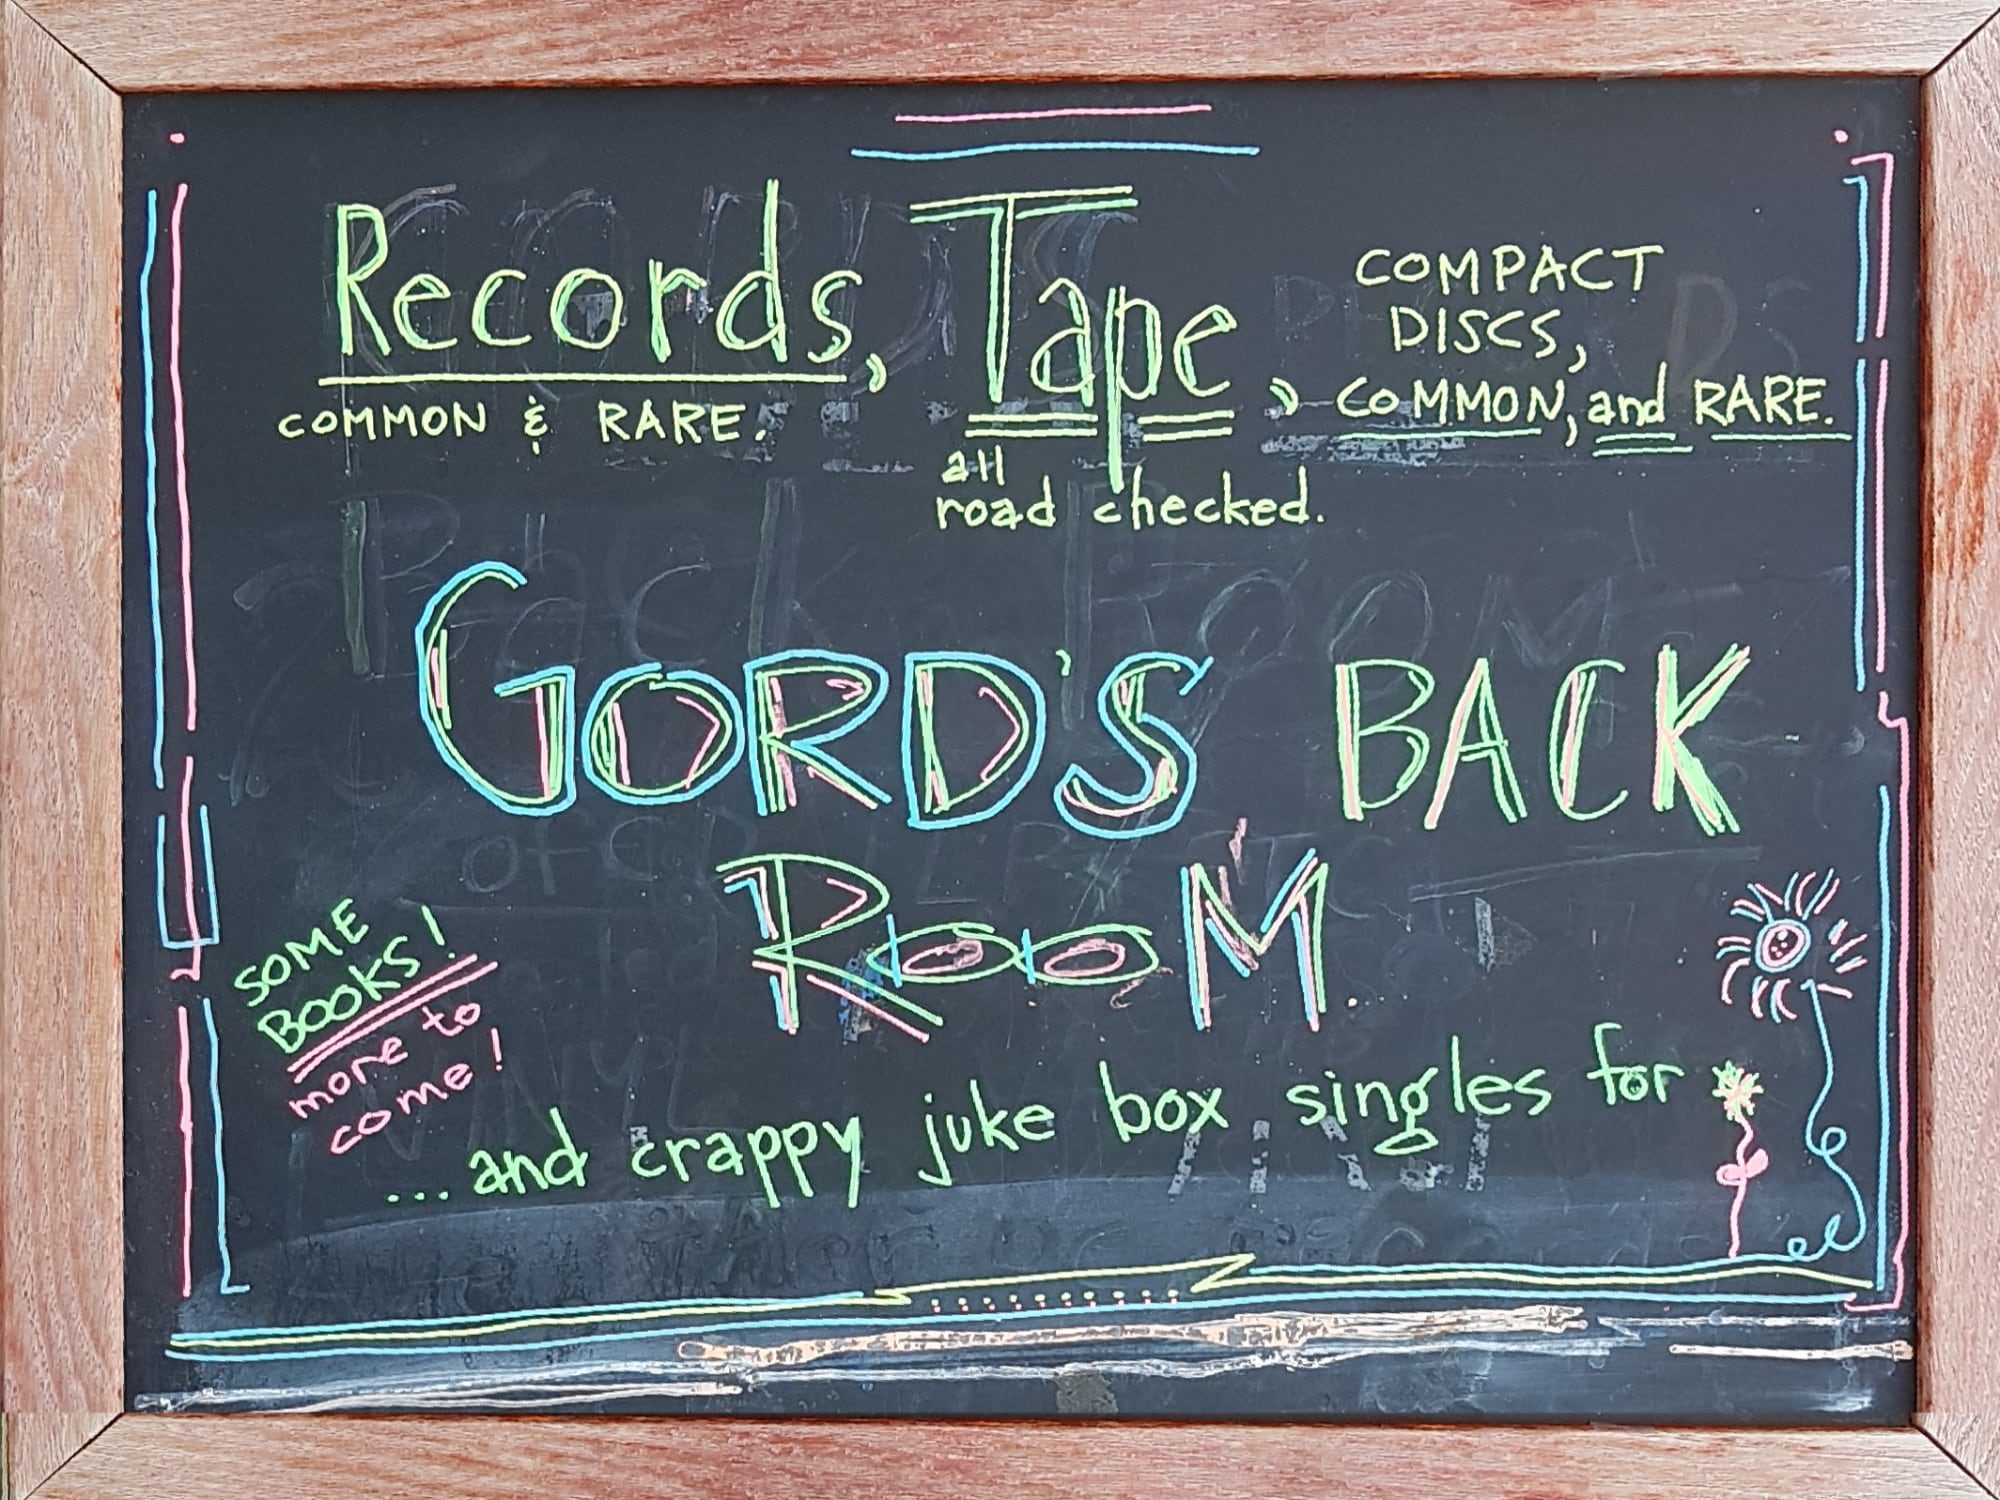 Records, Tape, COMPACT
DISCS,
COMMON, and RARE.
COMMON & RARE.
all
road checked.
GORD'S BACK
ROOM.
SOME
BOOKS!
more to
come!
...and crappy juke box singles for